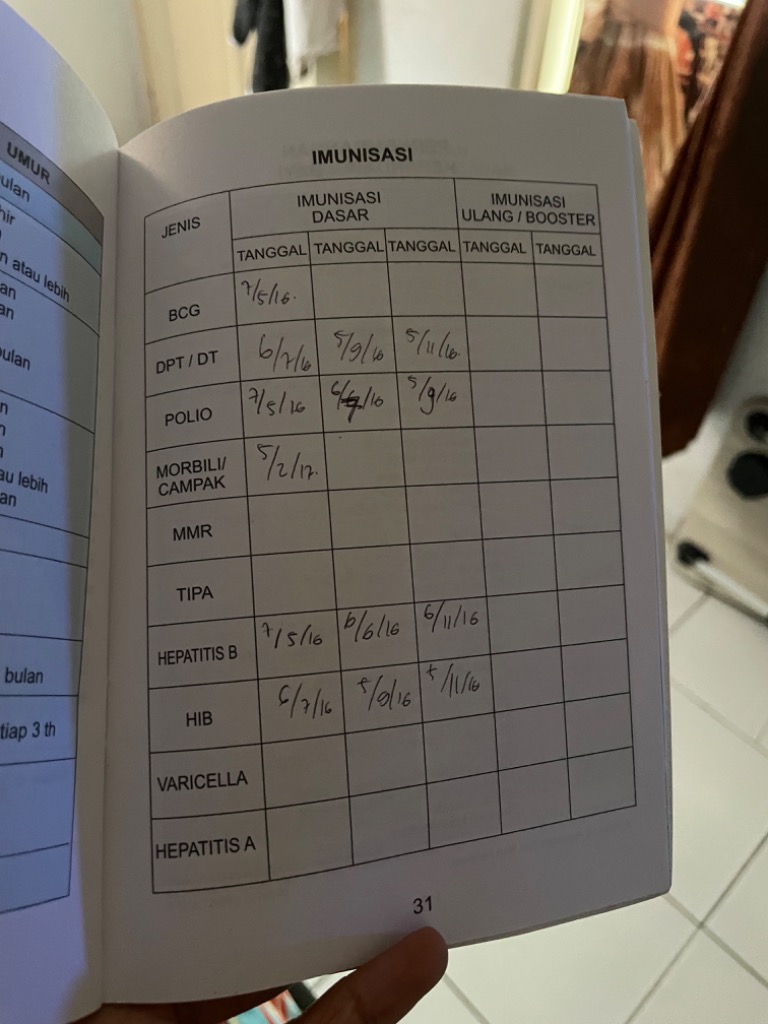 UMUR
ulan
hir
n atau lebih
an
an
ulan
n
n
n
au lebih
an
bulan
tiap 3 th
IMUNISASI
JENIS IMUNISASI DASAR IMUNISASI ULANG / BOOSTER
TANGGAL TANGGAL TANGGAL TANGGAL TANGGAL
BCG 7/5/16.
DPT / DT 6/7/16 5/9/16 5/11/16.
POLIO 7/5/16 5/9/16
MORBILI/ CAMPAK 5/2/17.
MMR
TIPA
HEPATITIS B 7/5/16 6/6/16 6/11/16
HIB 6/7/16 5/9/16 5/11/16
VARICELLA
HEPATITIS A
31